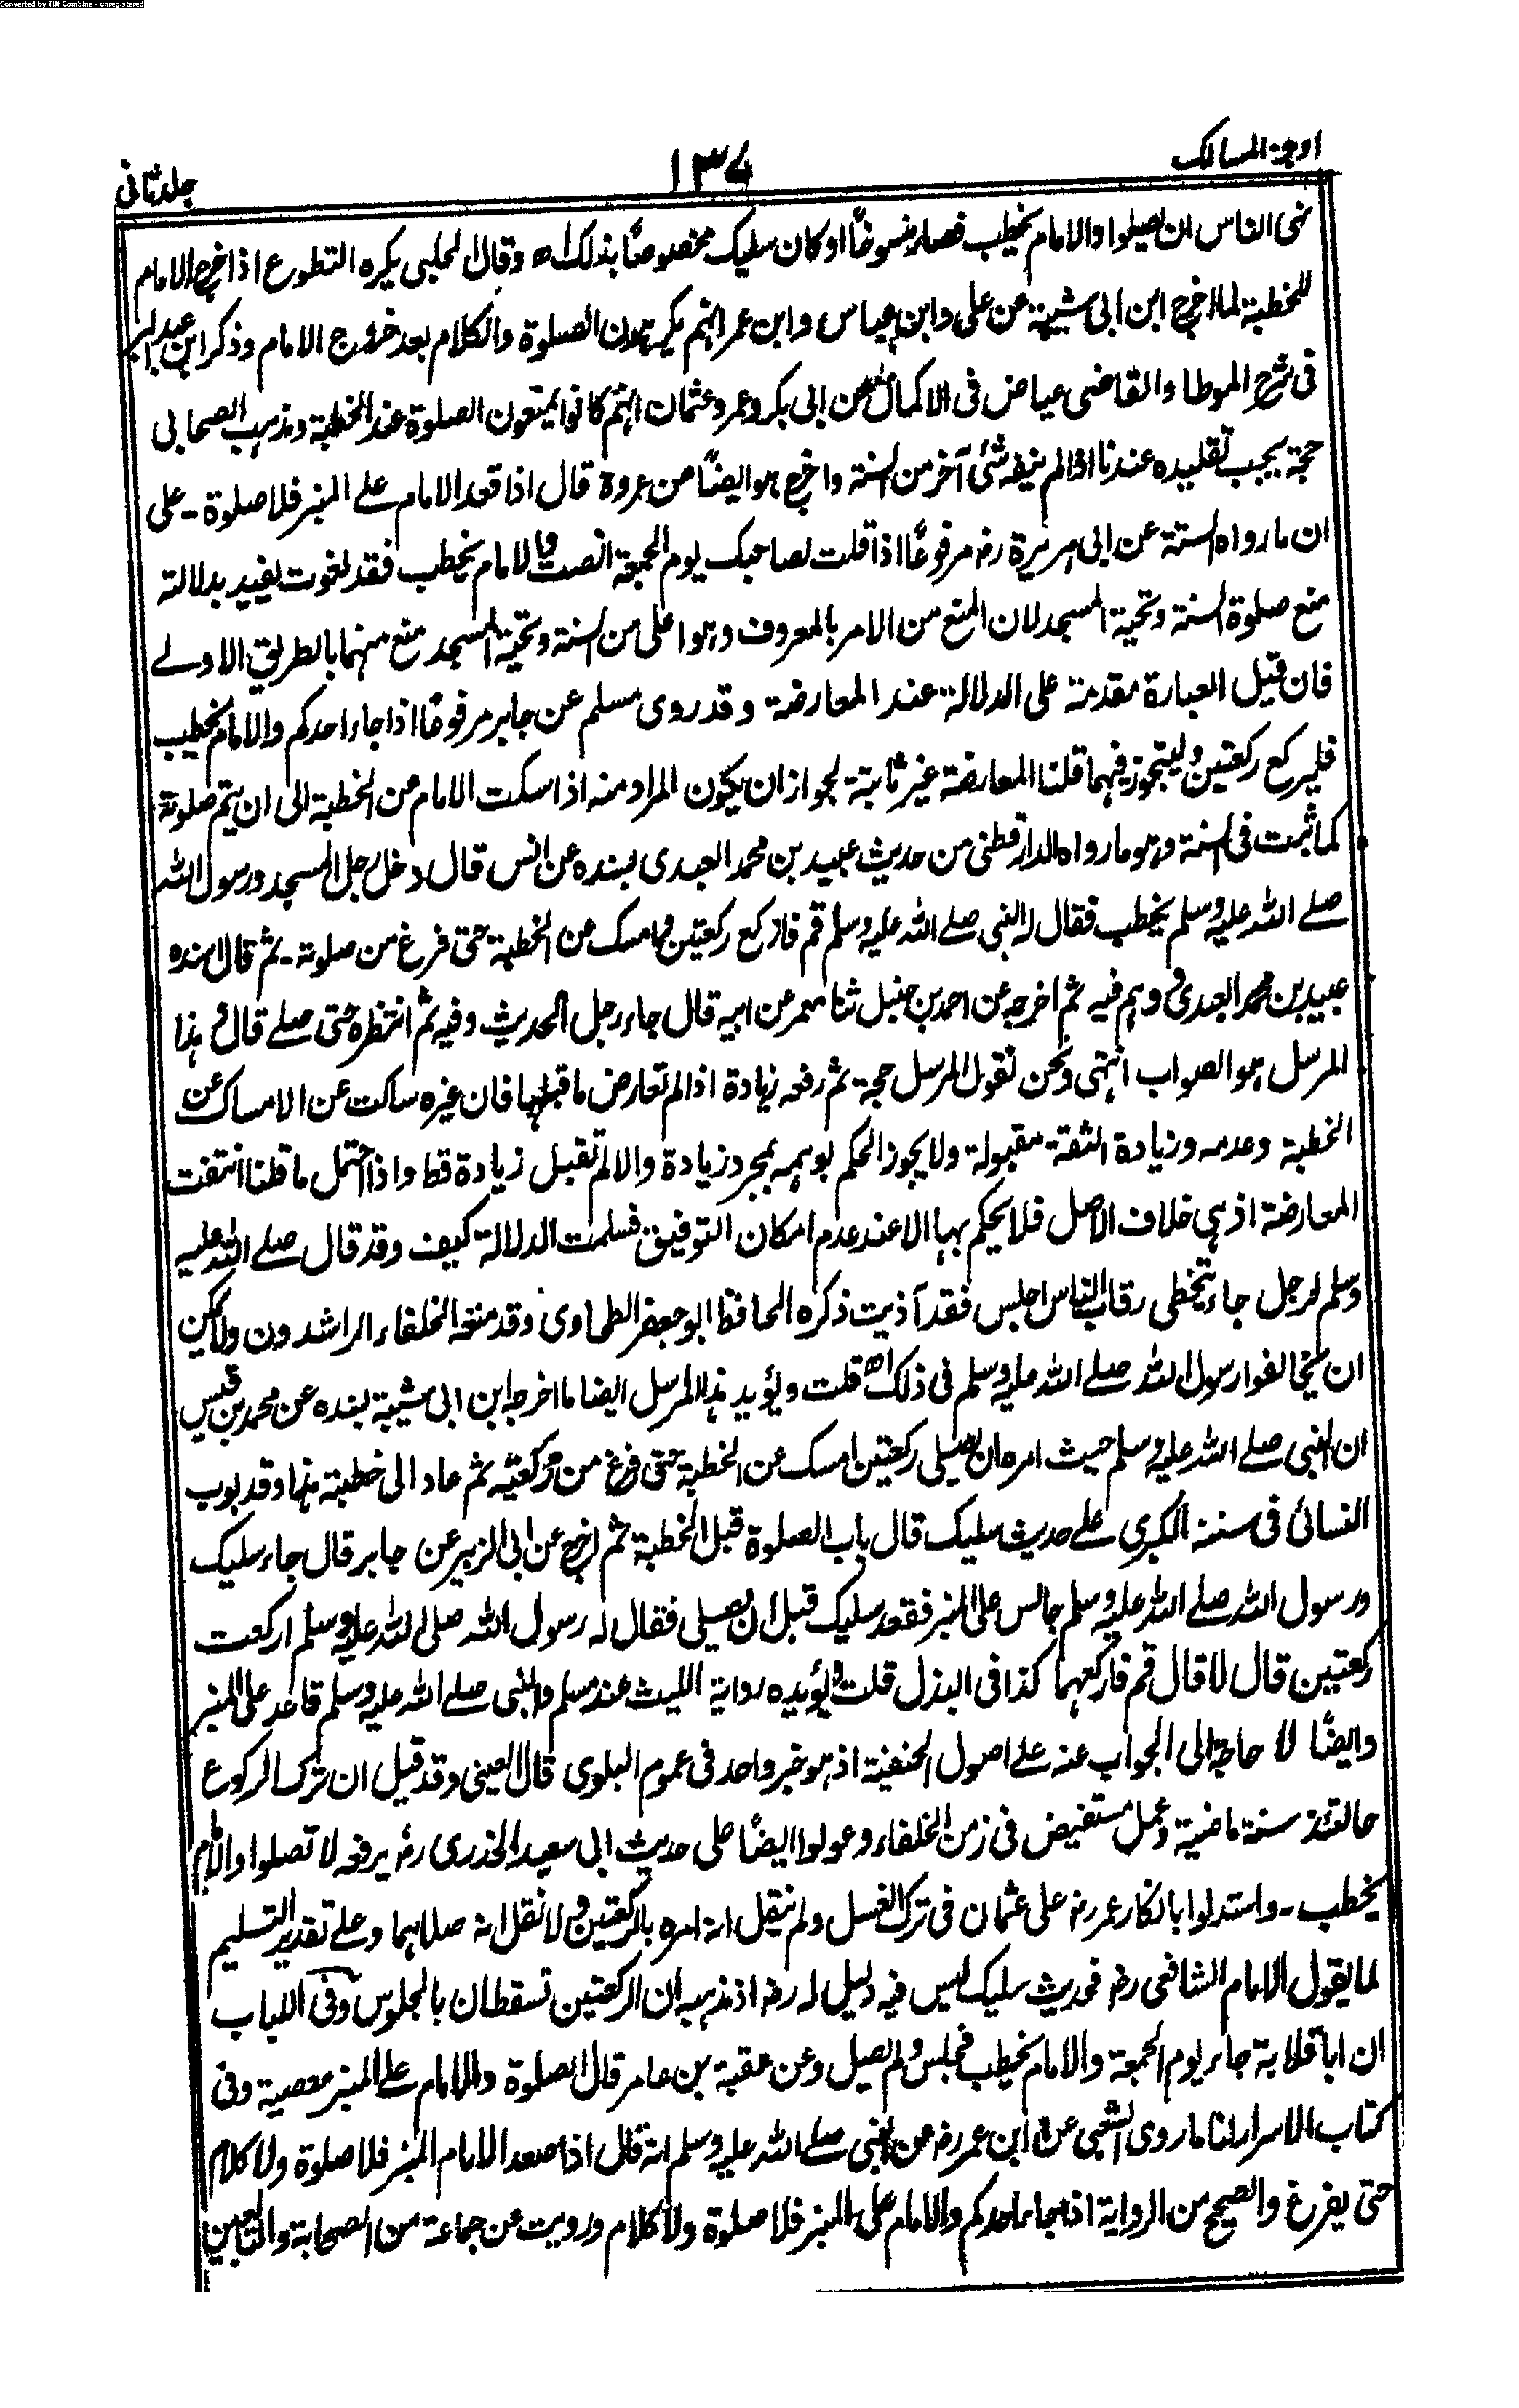 Converted by Tiff Combine - unregistered
اوجز المسالك
١٣٧
جلد ثانی
نہی الناس ان یصلوا والامام یخطب فصار منسوخًا او کان سلیک مخصوصًا بذلک اھ وقال الحلبی یکره التطوع اذا خرج الامام
للخطبة لما اخرج ابن ابی شیبة عن علی وابن عباس وابن عمر انہم یکرہون الصلوة والکلام بعد خروج الامام وذکر ابن عبد البر
فی شرح الموطا والقاضی عیاض فی الاکمال عن ابی بکر وعمر وعثمان انہم کانوا یمنعون الصلوة عند الخطبة ومذہب الصحابی
حجة یجب تقلیده عندنا اذا لم ینفه شئی آخر من السنة واخرج ہو ایضًا عن عروة قال اذا قعد الامام علے المنبر فلا صلوة ـ علی
ان ما رواه الستة عن ابی ہریرة رضہ مرفوعًا اذا قلت لصاحبک یوم الجمعة انصت والامام یخطب فقد لغوت یفید بدلالته
منع صلوة السنة وتحیة المسجد لان المنع من الامر بالمعروف وہو اعلی من السنة وتحیة المسجد منع منہما بالطریق الاولے
فان قیل العبارة مقدمة علی الدلالة عند المعارضة وقد روی مسلم عن جابر مرفوعًا اذا جاء احدکم والامام یخطب
فلیرکع رکعتین ولیتجوز فیہما قلنا المعارضة غیر ثابتة لجواز ان یکون المراد منه اذا سکت الامام عن الخطبة الی ان یتم صلوته
کما ثبت فی السنة وہو ما رواه الدارقطنی من حدیث عبید بن محمد العبدی بسنده عن انس قال دخل رجل المسجد ورسول الله
صلے الله علیه وسلم یخطب فقال له النبی صلے الله علیه وسلم قم فارکع رکعتین وامسک عن الخطبة حتی فرغ من صلوته ـ ثم قال اسنده
عبید بن محمد العبدی ووہم فیه ثم اخرجه عن احمد بن حنبل ثنا معتمر عن ابیه قال جاء رجل الحدیث وفیه ثم انتظره حتی صلے قال وہذا
المرسل ہو الصواب انتہی ونحن نقول المرسل حجة ثم رفعه زیادة اذا لم تعارض ما قبلہا فان غیره ساکت عن الامساک عن
الخطبة وعدمه وزیادة الثقة مقبولة ولا یجوز الحکم بوہمه بمجرد زیادة والا لم تقبل زیادة قط واذا احتمل ما قلنا انتفت
المعارضة اذ ہی خلاف الاصل فلا یحکم بہا الا عند عدم امکان التوفیق فسلمت الدلالة کیف وقد قال صلے الله علیه
وسلم لرجل جاء یتخطی رقاب الناس اجلس فقد آذیت ذکره الحافظ ابو جعفر الطحاوی وقد منعه الخلفاء الراشدون ولا یمکن
ان یخالفوا رسول الله صلے الله علیه وسلم فی ذلک اھ قلت ویؤید ہذا المرسل ایضا ما اخرجه ابن ابی شیبة بسنده عن محمد بن قیس
ان النبی صلے الله علیه وسلم حیث امره ان یصلی رکعتین امسک عن الخطبة حتی فرغ من رکعتیه ثم عاد الی خطبته ہذا وقد بوب
النسائی فی سننه الکبری علے حدیث سلیک قال باب الصلوة قبل الخطبة ثم اخرج عن ابی الزبیر عن جابر قال جاء سلیک
ورسول الله صلے الله علیه وسلم جالس علی المنبر فقعد سلیک قبل ان یصلی فقال له رسول الله صلی الله علیه وسلم ارکعت
رکعتین قال لا قال قم فارکعہما کذا فی البذل قلت ویؤیده روایة اللیث عند مسلم والنبی صلے الله علیه وسلم قاعد علی المنبر
وایضًا لا حاجة الی الجواب عنه علے اصول الحنفیة اذ ہو خبر واحد فی عموم البلوی قال العینی وقد قیل ان ترک الرکوع
حالتئذ سنة ماضیة وعمل مستفیض فی زمن الخلفاء وعولوا ایضًا علی حدیث ابی سعید الخدری رضہ یرفعه لا تصلوا والامام
یخطب ـ واستدلوا بانکار عمر رضہ علی عثمان فی ترک الغسل ولم ینقل انه امره بالرکعتین ولا نقل انه صلاہما وعلے تقدیر التسلیم
لما یقول الامام الشافعی رضہ فحدیث سلیک لیس فیه دلیل له رضہ اذ مذہبه ان الرکعتین تسقطان بالجلوس وفی اللباب
ان ابا قلابة جاء یوم الجمعة والامام یخطب فجلس ولم یصل وعن عقبة بن عامر قال الصلوة والامام علے المنبر معصیة وفی
کتاب الاسرار لنا ما روی الشعبی عن ابن عمر رضہ عن النبی صلے الله علیه وسلم انه قال اذا صعد الامام المنبر فلا صلوة ولا کلام
حتی یفرغ والصحیح من الروایة اذا جاء احدکم والامام علی المنبر فلا صلوة ولا کلام ورویت عن جماعة من الصحابة والتابعین